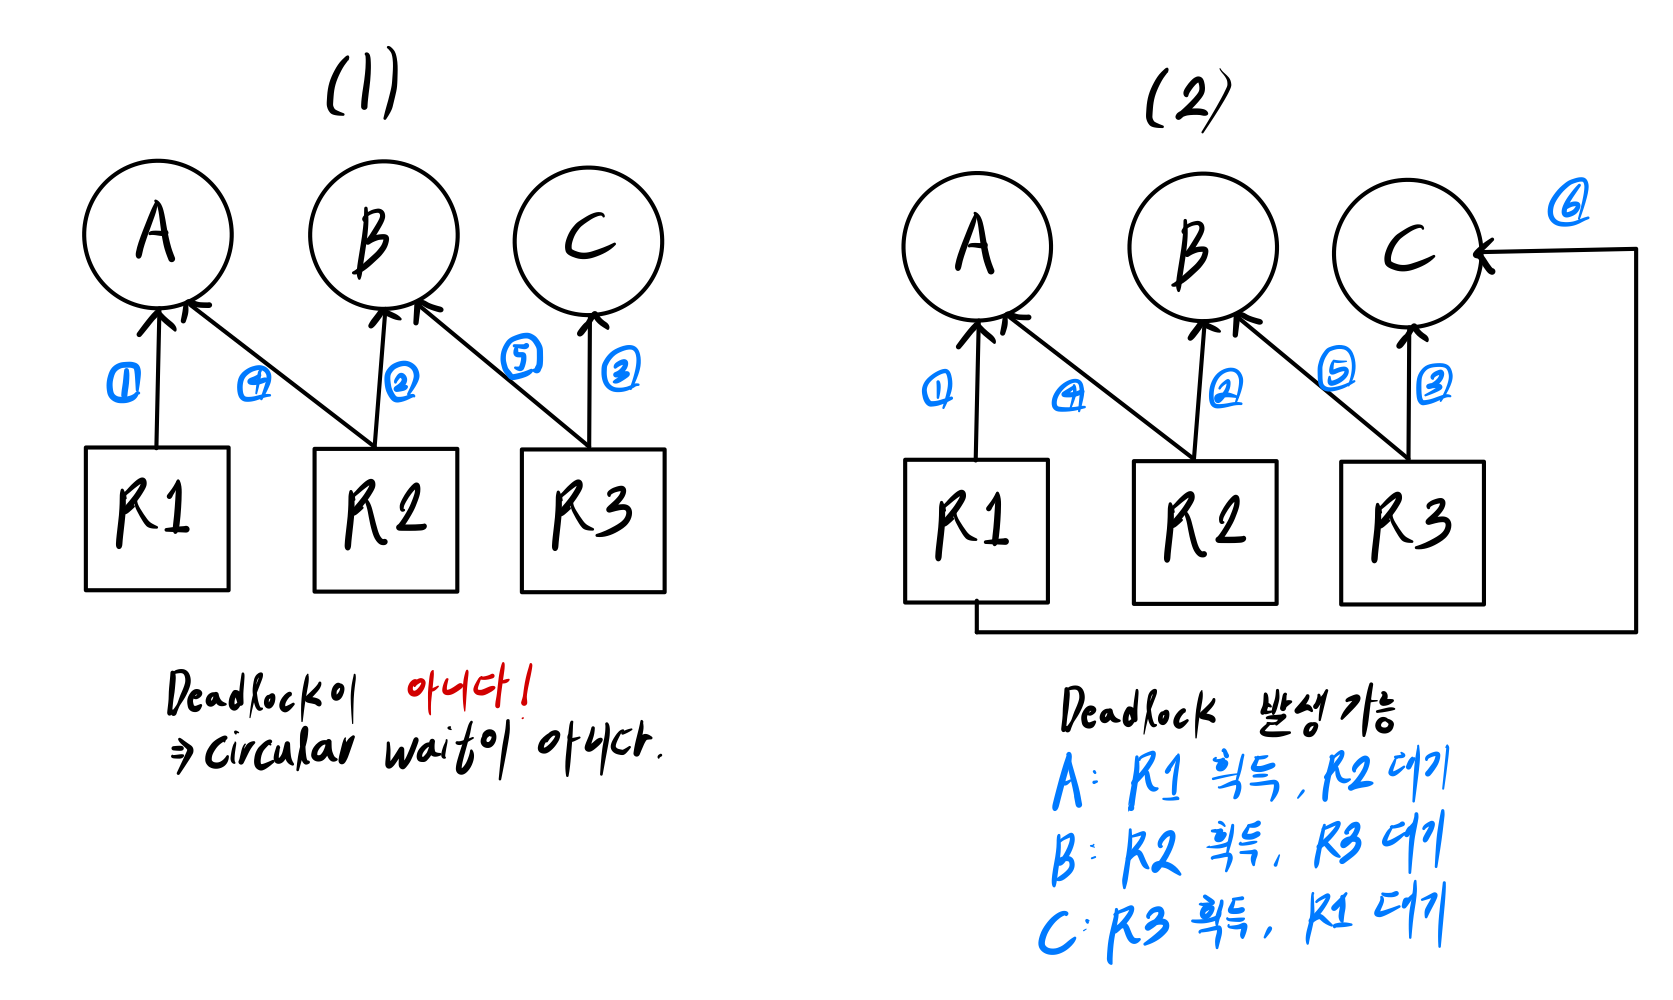 (1)
A B C
① ④ ② ⑤ ③
R1 R2 R3
Deadlock이 아니다!
⇒ Circular wait이 아니다.
(2)
A B C
⑥
① ④ ② ⑤ ③
R1 R2 R3
Deadlock 발생 가능
A: R1 획득, R2 대기
B: R2 획득, R3 대기
C: R3 획득, R1 대기